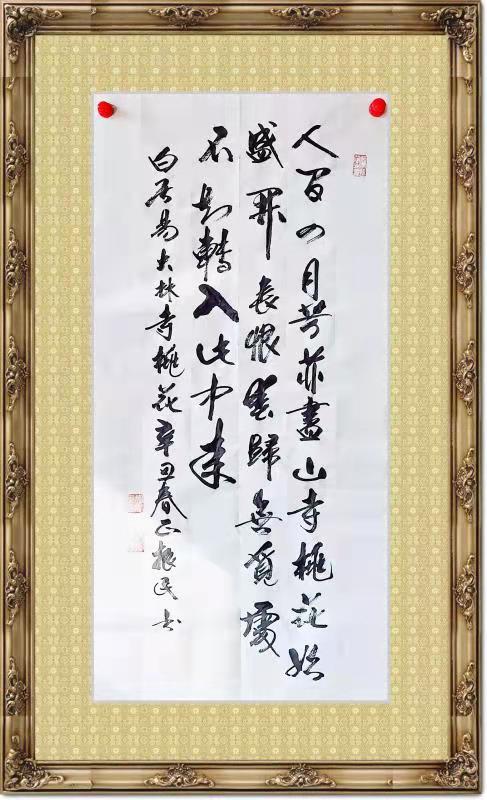 人間四月芳菲盡山寺桃花始
盛開長恨春歸無覓處
不知轉入此中來
白居易大林寺桃花辛丑春振民书